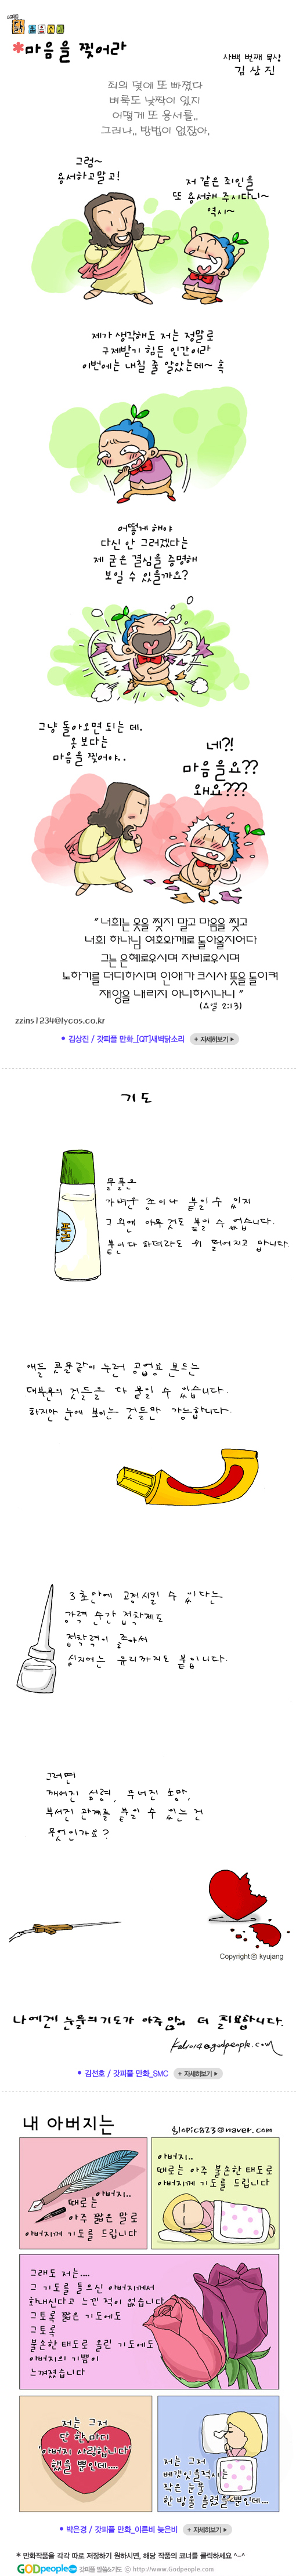 *마음을 찢어라
사백 번째 묵상
김 상 진
죄의 덫에 또 빠졌다
벼룩도 낯짝이 있지
어떻게 또 용서를,,
그러나,, 방법이 없잖아,
그럼~
용서하고말고!
저 같은 죄인을
또 용서해 주시다니~
역시~
제가 생각해도 저는 정말로
구제받기 힘든 인간이라
이번에는 내칠 줄 알았는데~ 흑
어떻게 해야
다신 안 그러겠다는
제 굳은 결심을 증명해
보일 수 있을까요?
그냥 돌아오면 되는 데.
옷보다는
마음을 찢어야..
네?!
마음을요??
왜요???
"너희는 옷을 찢지 말고 마음을 찢고
너희 하나님 여호와께로 돌아올지어다
그는 은혜로우시며 자비로우시며
노하기를 더디하시며 인애가 크시사 뜻을 돌이켜
재앙을 내리지 아니하시나니"
(요엘 2:13)
zzins1234@lycos.co.kr
• 김상진 / 갓피플 만화_[QT]새벽닭소리 + 자세히보기 ▶
기도
물풀은
가벼운 종이나 붙일 수 있지
그 외엔 아무 것도 붙일 수 없습니다.
붙인다 하더라도 곧 떨어지고 맙니다.
애들 콧물같이 누런 공업용 본드는
대부분의 것들을 다 붙일 수 있습니다.
하지만 눈에 보이는 것들만 가능합니다.
3초만에 고정시킬 수 있다는
강력 순간 접착제도
접착력이 좋아서
심지어는 유리까지도 붙입니다.
그러면
깨어진 심령, 무너진 소망,
부서진 관계를 붙일 수 있는 건
무엇인가요?
Copyright© kyujang
나에겐 눈물의기도가 아주많이 더 필요합니다.
• 김선호 / 갓피플 만화_SMC + 자세히보기 ▶
내 아버지는
아버지..
때로는
아주 짧은 말로
아버지께 기도를 드립니다
아버지..
때로는 아주 불손한 태도로
아버지께 기도를 드립니다
그래도 저는....
그 기도를 들으신 아버지께서
화내신다고 느낀 적이 없습니다
그토록 짧은 기도에도
그토록
불손한 태도로 올린 기도에도
아버지의 기쁨이
느껴졌습니다
저는 그저
단 한마디
'아버지 사랑합니다'
했을 뿐인데....
저는 그저
베갯잇을적시는
작은 눈물
한 방울 흘렸을뿐인데...
• 박은경 / 갓피플 만화_이른비 늦은비 + 자세히보기 ▶
* 만화작품을 각각 따로 저장하기 원하시면, 해당 작품의 코너를 클릭하세요 ^-^
GODpeople 갓피플 말씀&기도 ⓒ http://www.Godpeople.com